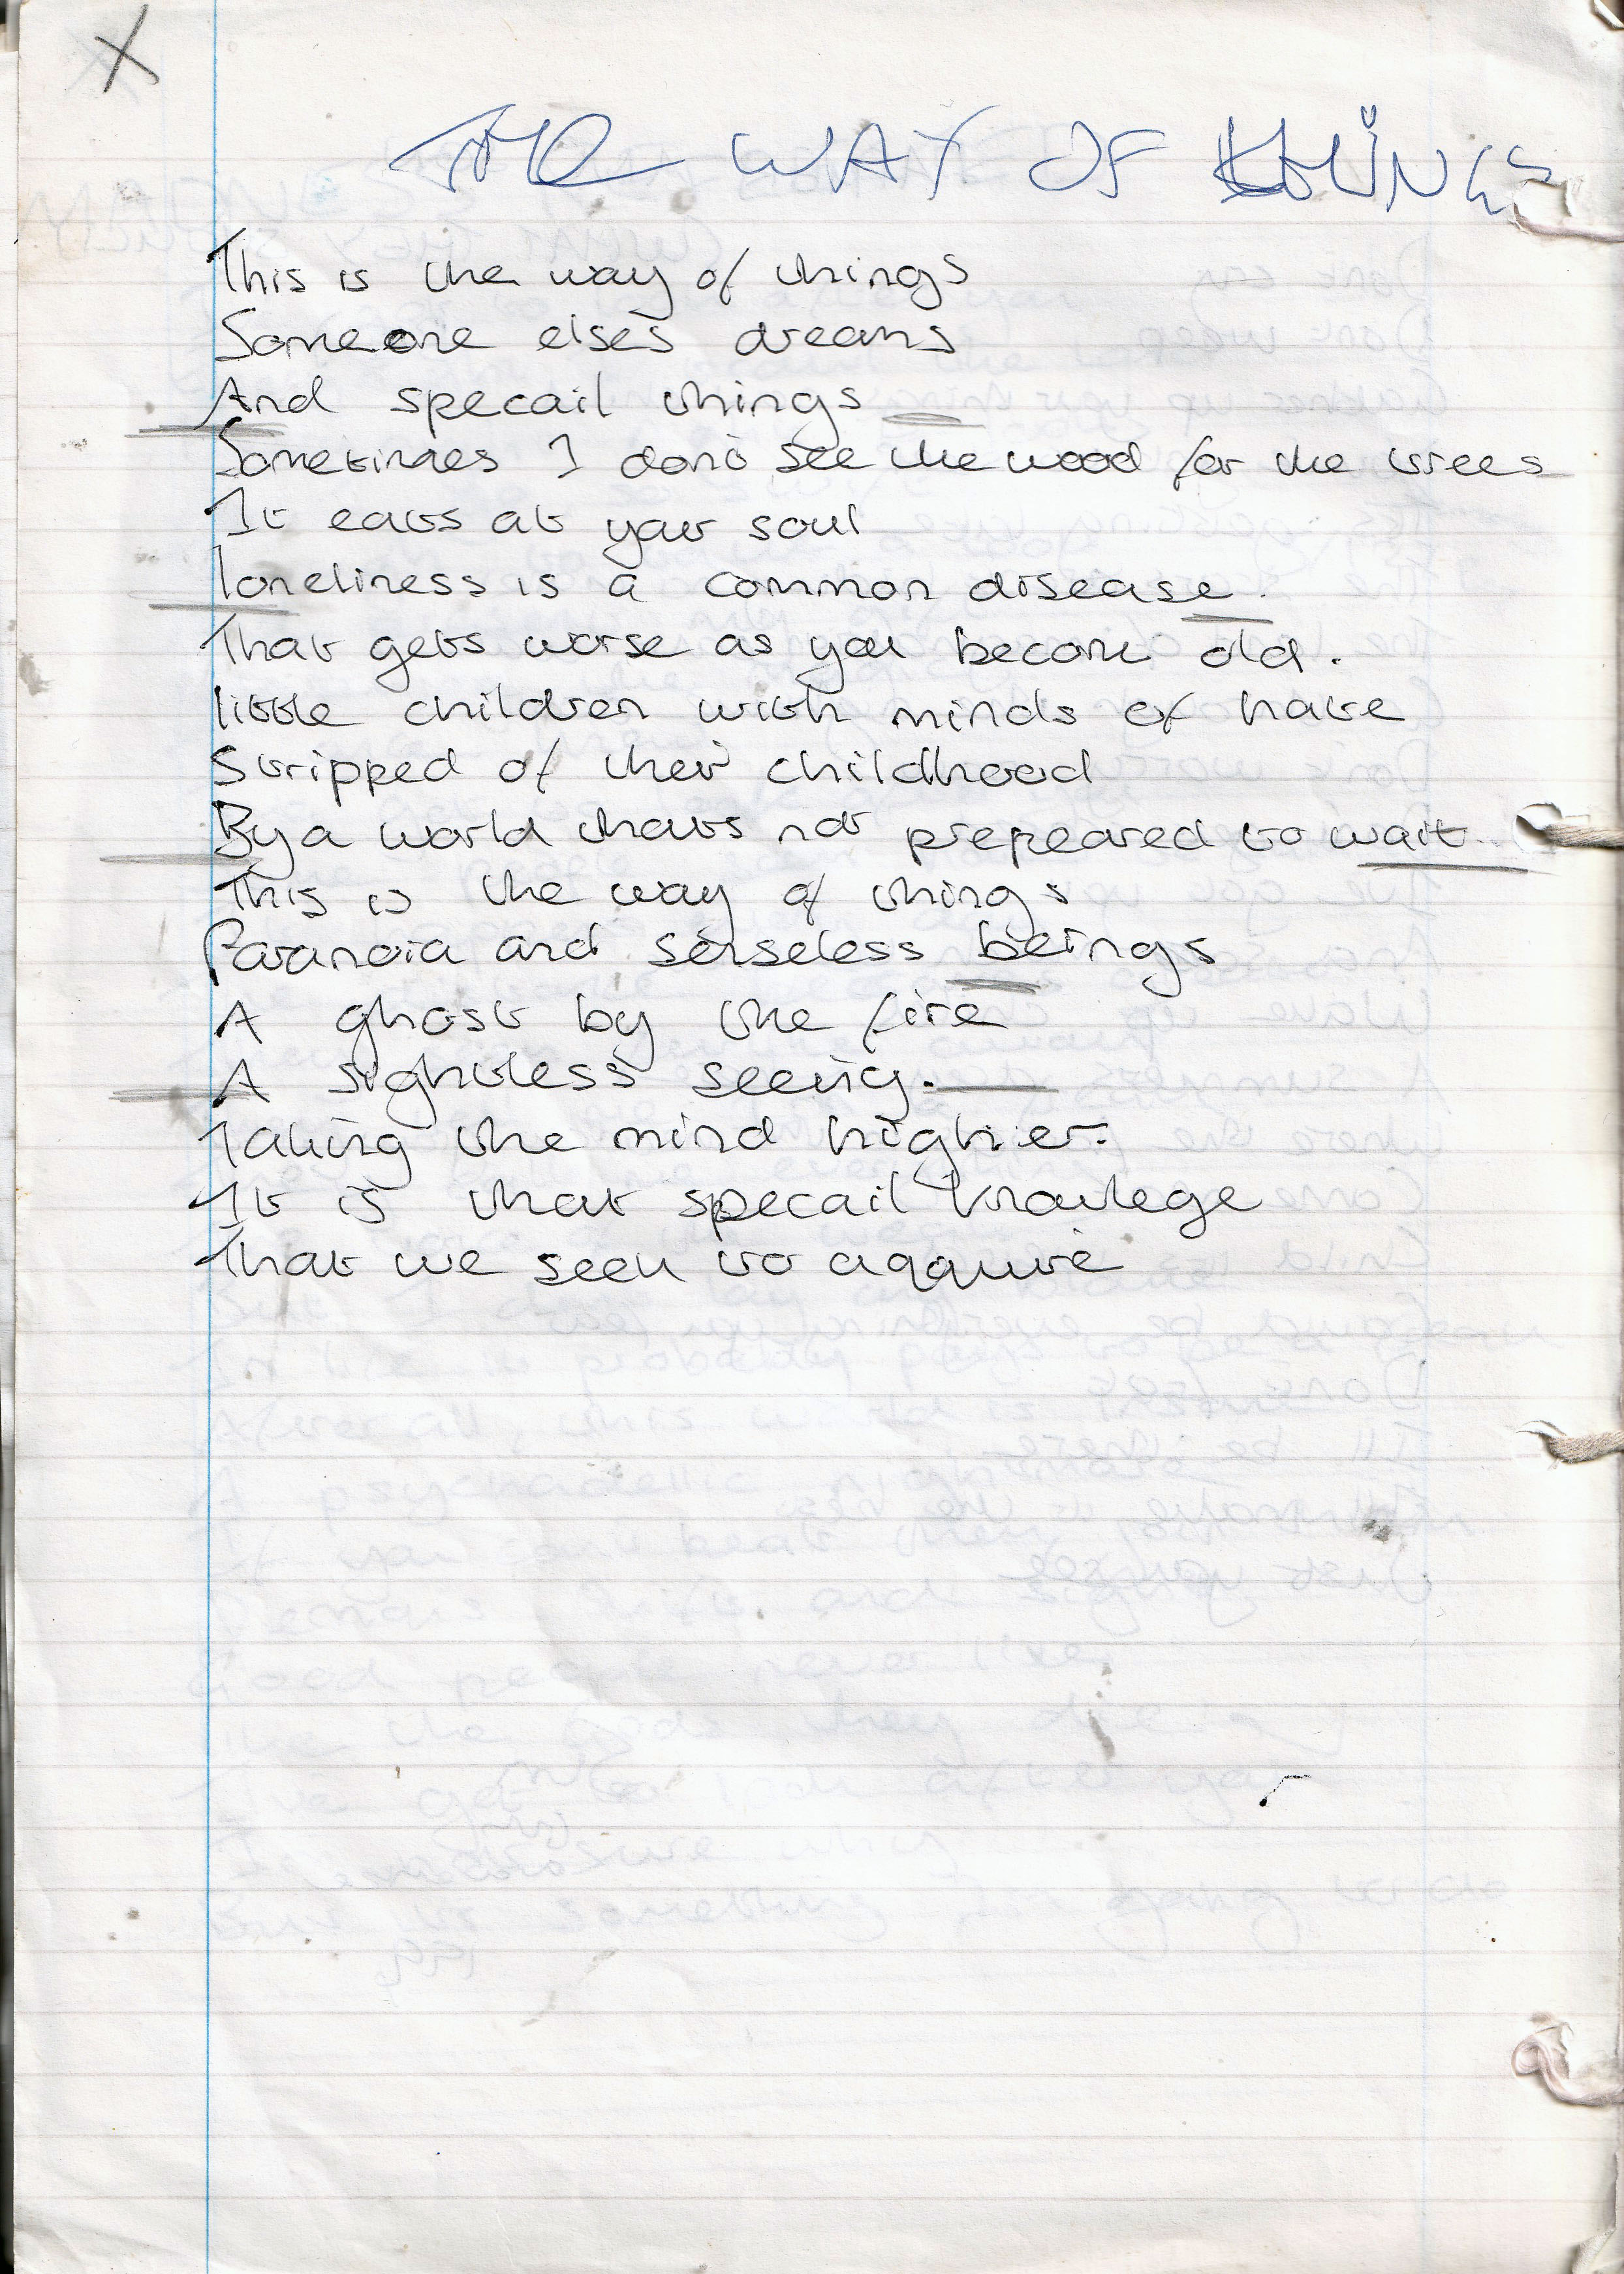 X
THE WAY OF THINGS
This is the way of things
Someone elses dreams
And specail things
Sometimes I dont see the wood for the trees
It eats at your soul
loneliness is a common disease.
That gets worse as you become old.
little children with minds of hate
Stripped of their childhood
By a world thats not prepeared to wait.
This is the way of things
Paranoia and senseless beings
A ghost by the fire
A sightless seeing.
Taking the mind higher.
It is that specail knowlege
That we seek to aqquire